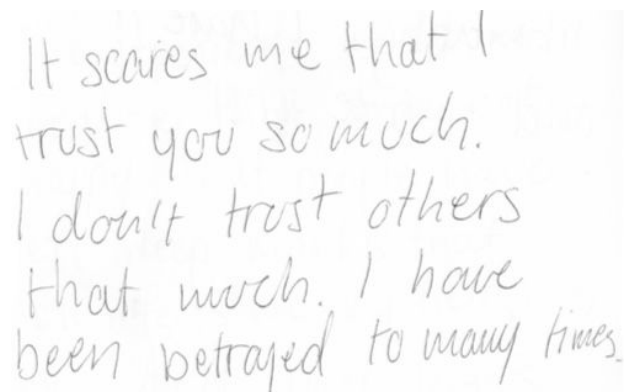 It scares me that I
trust you so much.
I don't trust others
that much. I have
been betrayed to many times.